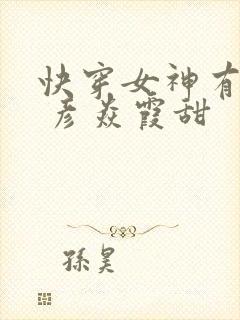 快穿女神有
彦焱霞甜
孫昊